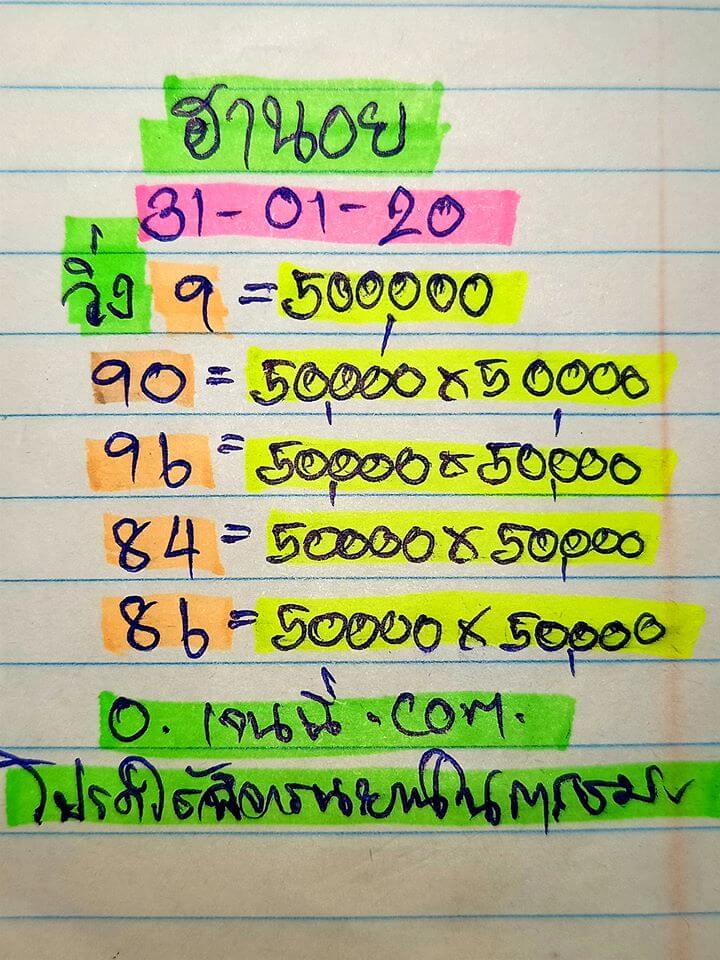 ฮานอย
31-01-20
วิ่ง 9 = 500,000
90 = 50,000 x 50000
96 = 50,000 x 50,000
84 = 50000 x 50,000
86 = 50000 x 50,000
อ. เจนนี่ .com.
โปรด